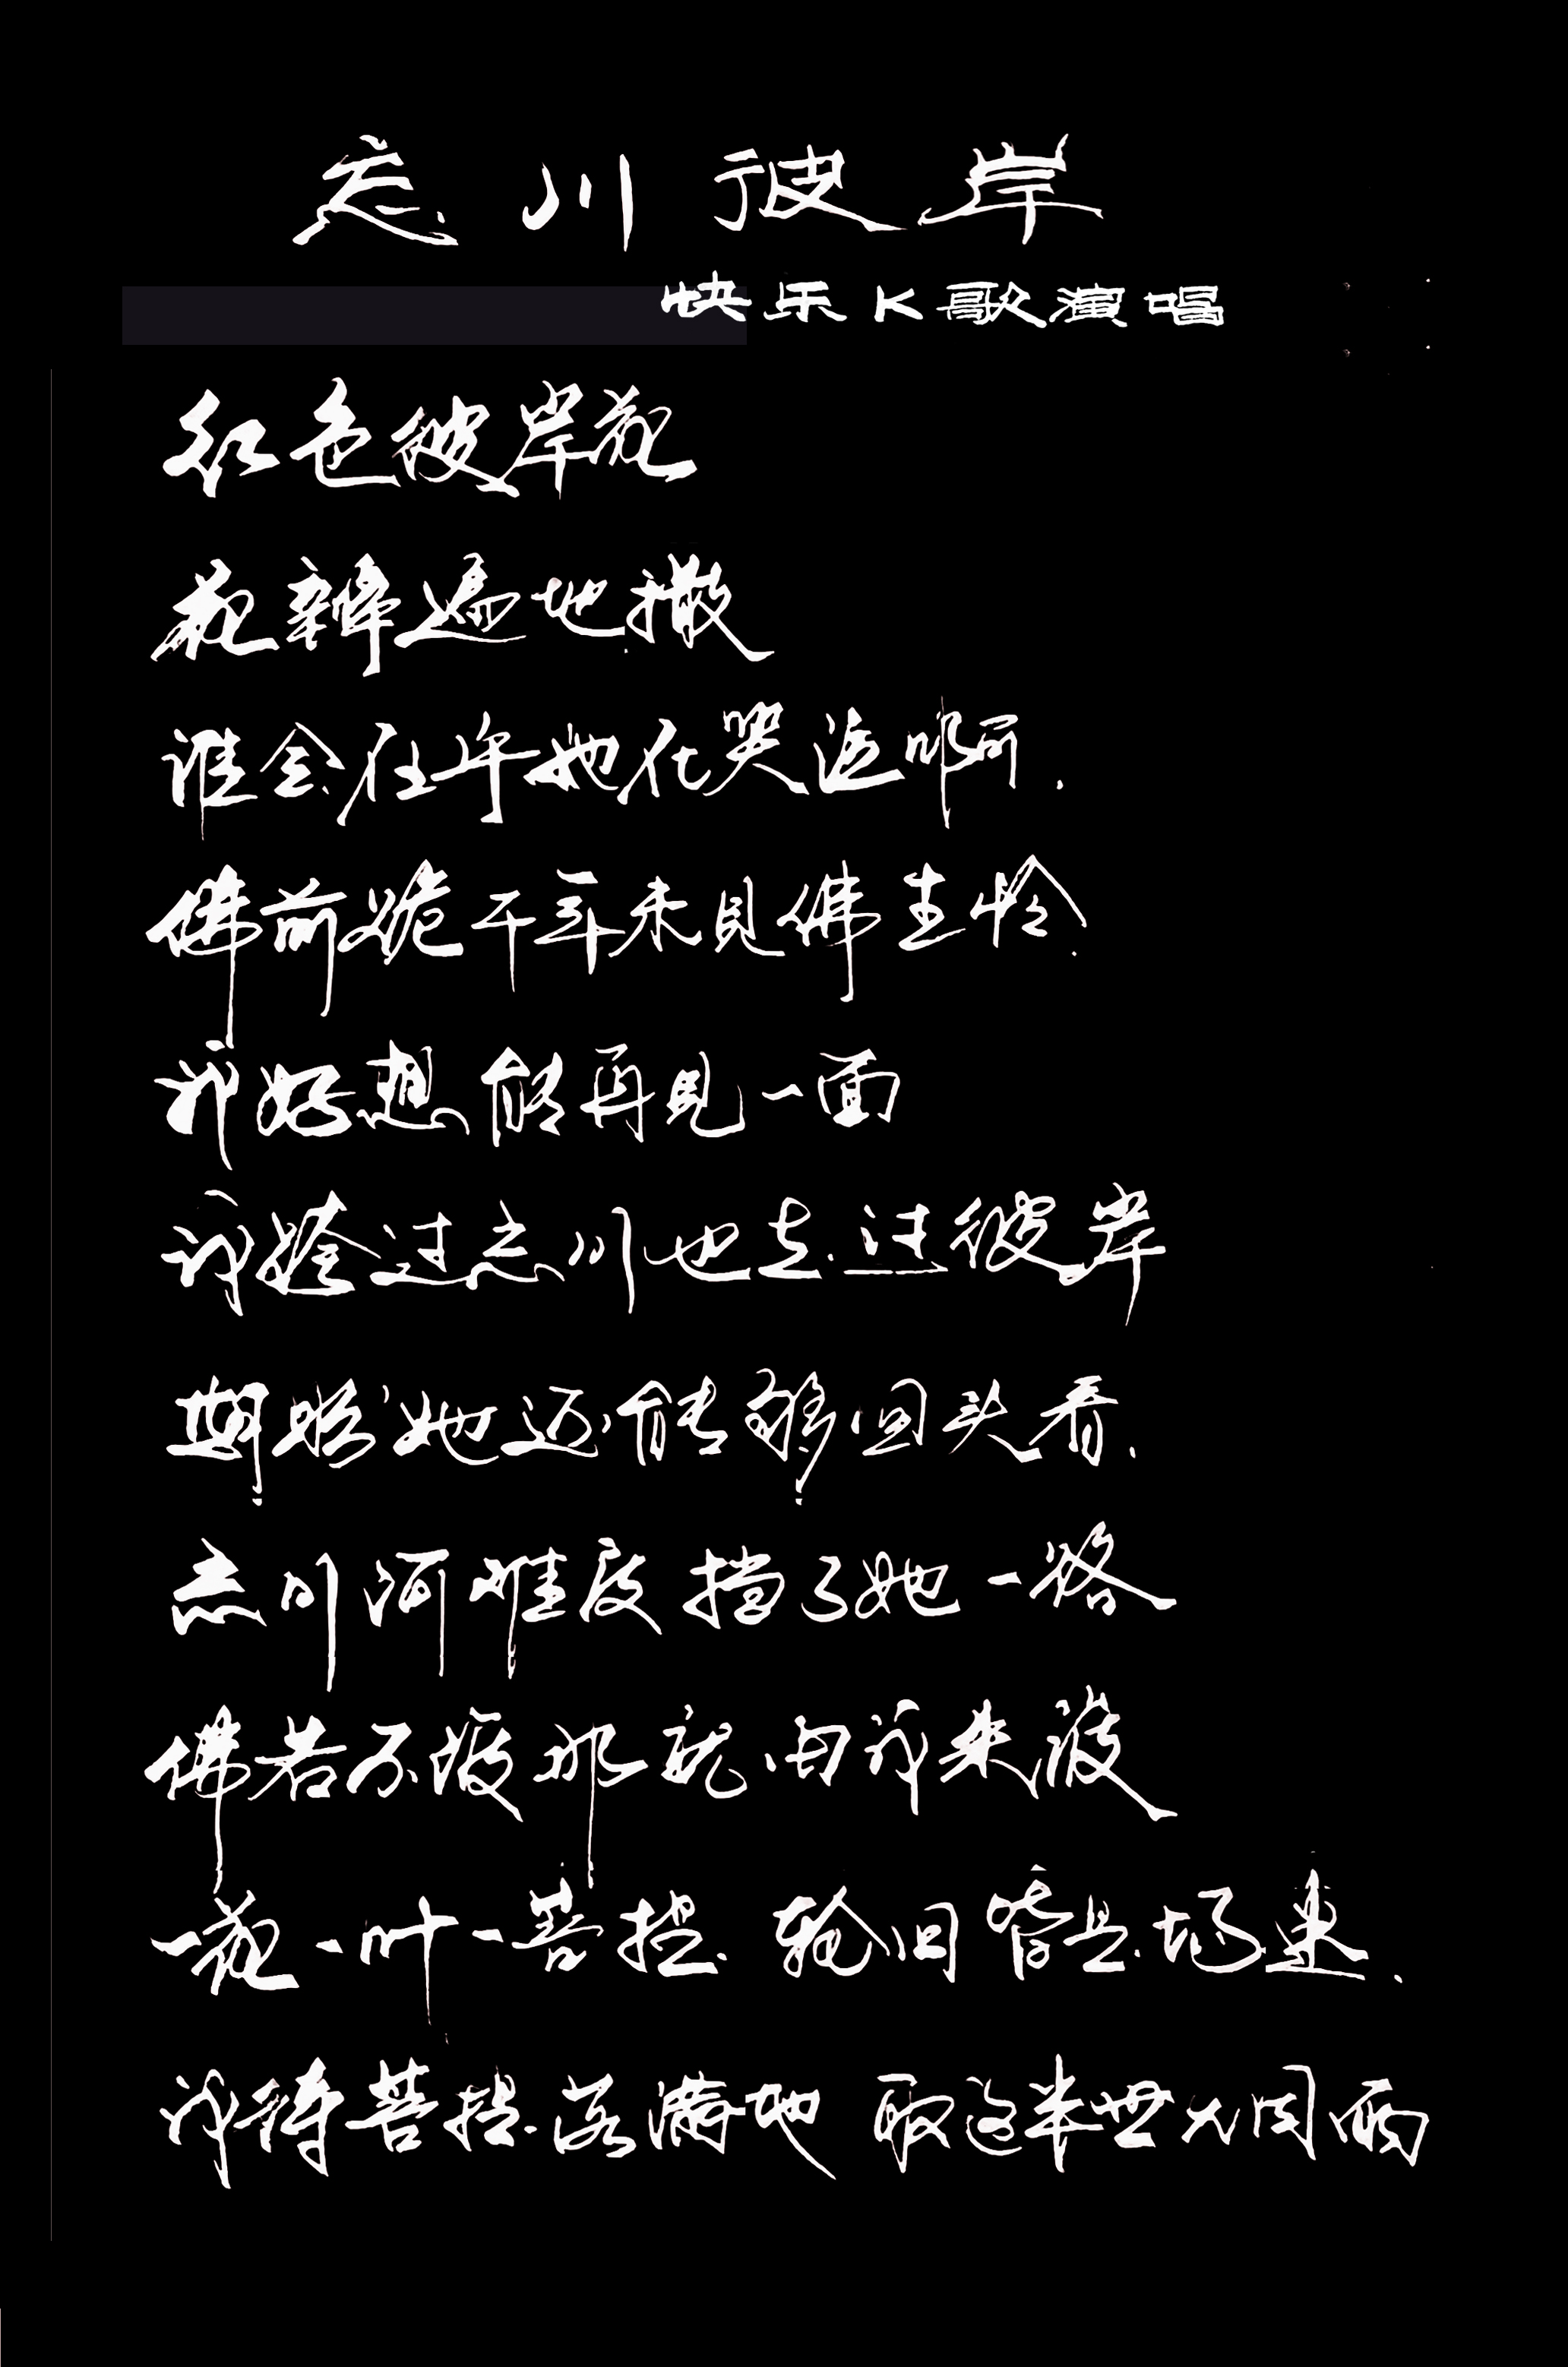 忘川彼岸
快乐K歌演唱
红色彼岸花
花瓣遍地撒
谁会在乎她在哭泣啊
佛前跪千年未见佛生怜
我好想能再见一面
我跨过忘川也去过彼岸
期盼她还能够回头看
忘川河难度挡了她一路
佛若不渡她就由我来渡
一花一叶一菩提 轮回尝尽记迷
我待菩提落满地 取这半世大闹雨